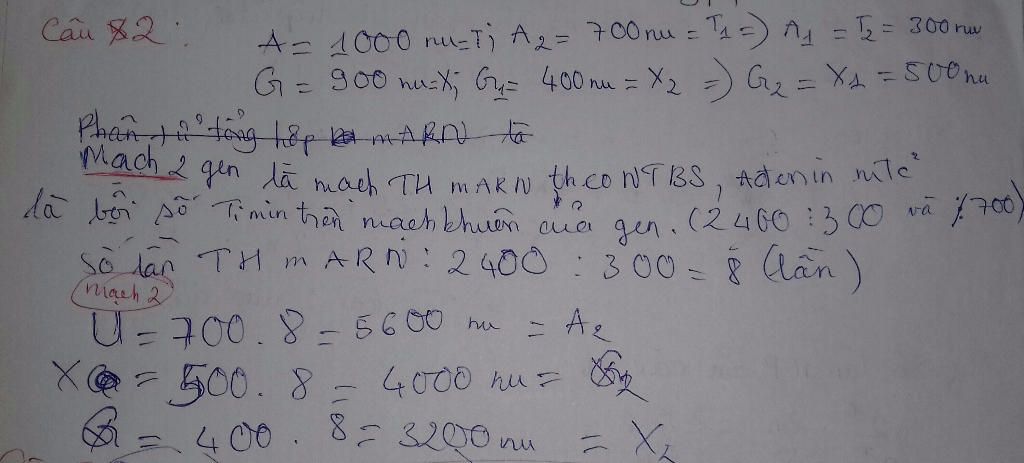 Câu 2 :
A = 1000 nu = T ; A2 = 700 nu = T1 => A1 = T2 = 300 nu
G = 900 nu = X ; G1 = 400 nu = X2 => G2 = X1 = 500 nu
Phân tử tổng hợp mARN là
Mạch 2 gen là mạch TH mARN theo NTBS, Adenin mtc²
là bội số Timin trên mạch khuôn của gen. (2400 : 300 và /700)
Số lần TH mARN : 2400 : 300 = 8 (lần)
Mạch 2
U = 700 . 8 = 5600 nu = A2
X = 500 . 8 = 4000 nu = G2
G = 400 . 8 = 3200 nu = X2